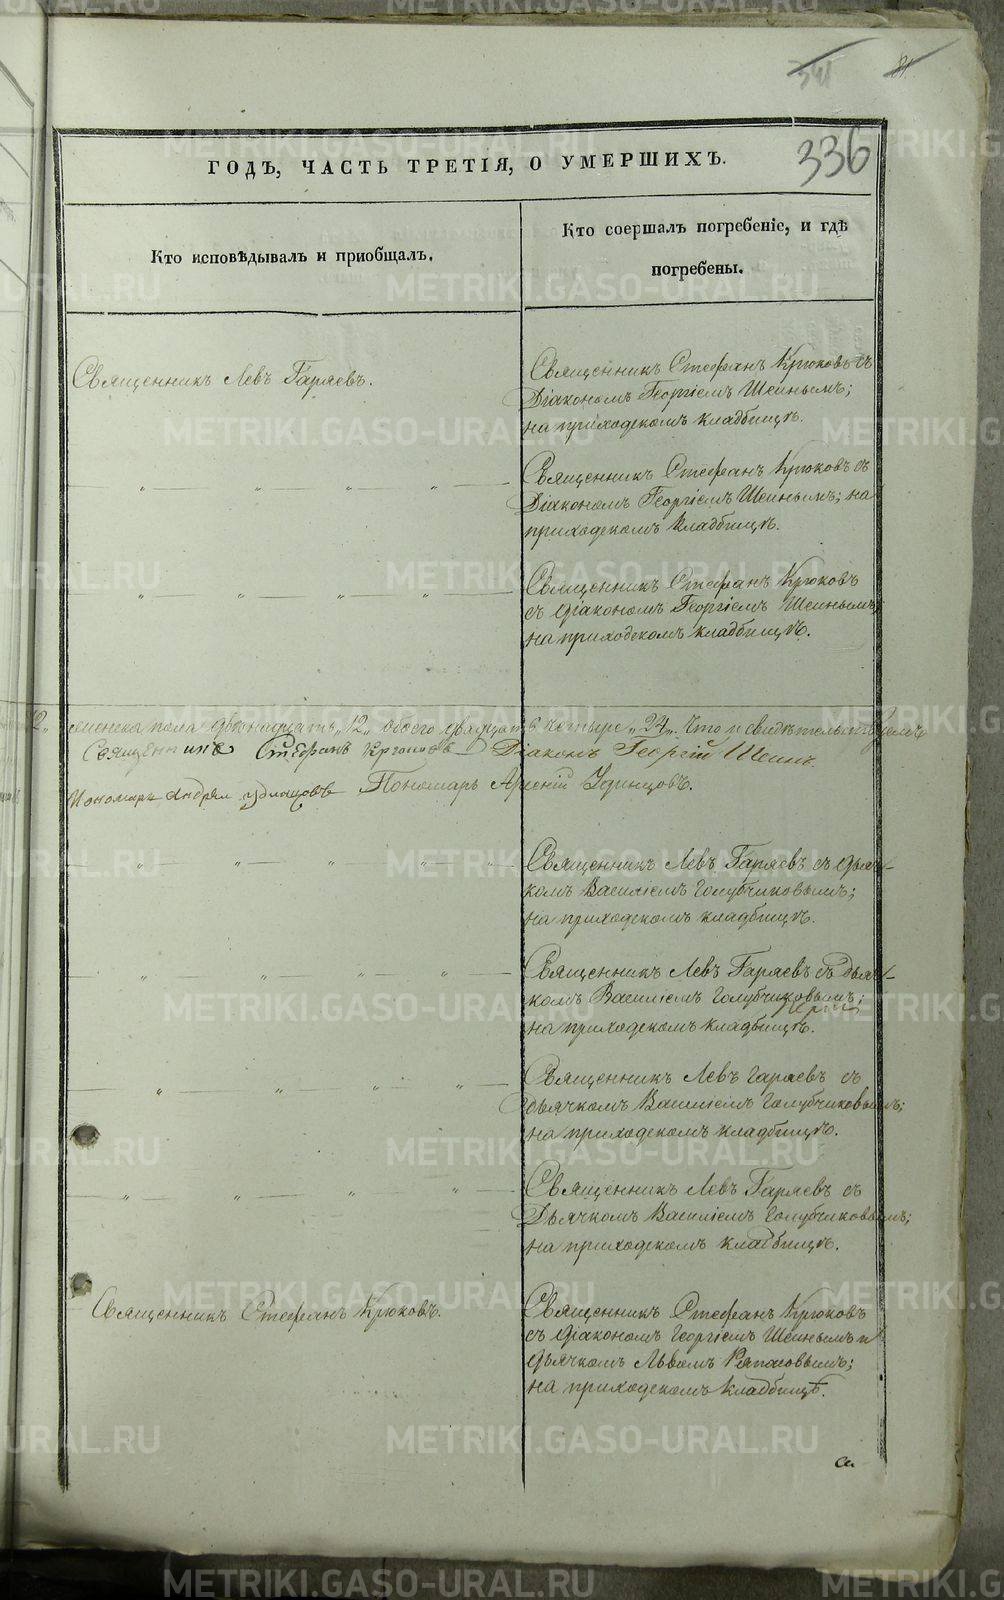 341 81
336
ГОДЪ, ЧАСТЬ ТРЕТІЯ, О УМЕРШИХЪ.
Кто исповѣдывалъ и приобщалъ.
Кто соершалъ погребеніе, и гдѣ
погребены.
Священникъ Левъ Гаряевъ.
Священникъ Стефанъ Крюковъ съ
Діакономъ Георгіемъ Шеинымъ;
на приходскомъ кладбищѣ.
" " " "
Священникъ Стефанъ Крюковъ съ
Діакономъ Георгіемъ Шеинымъ; на
приходскомъ кладбищѣ.
" " " "
Священникъ Стефанъ Крюковъ
съ діакономъ Георгіемъ Шеинымъ;
на приходскомъ кладбищѣ.
12„ женска пола двѣнадцать „12„ обоего двадцать четыре „24„. Что и свидѣтельствуемъ
Священникъ Стефанъ Крюковъ Діаконъ Георгій Шеинъ
Пономарь Андрей Пономарь Арсеній Удинцовъ.
" " " "
Священникъ Левъ Гаряевъ съ дьяч-
комъ Василіемъ Голубчиковымъ;
на приходскомъ кладбищѣ.
" " " "
Священникъ Левъ Гаряевъ съ дьяч-
комъ Василіемъ Голубчиковымъ;
на приходскомъ кладбищѣ.
" " " "
Священникъ Левъ Гаряевъ съ
дьячкомъ Василіемъ Голубчиковымъ;
на приходскомъ кладбищѣ.
" " " "
Священникъ Левъ Гаряевъ съ
Дьячкомъ Василіемъ Голубчиковымъ;
на приходскомъ кладбищѣ.
Священникъ Стефанъ Крюковъ.
Священникъ Стефанъ Крюковъ
съ діакономъ Георгіемъ Шеинымъ и
дьячкомъ Львомъ Ряпасовымъ;
на приходскомъ кладбищѣ.
METRIKI.GASO-URAL.RU